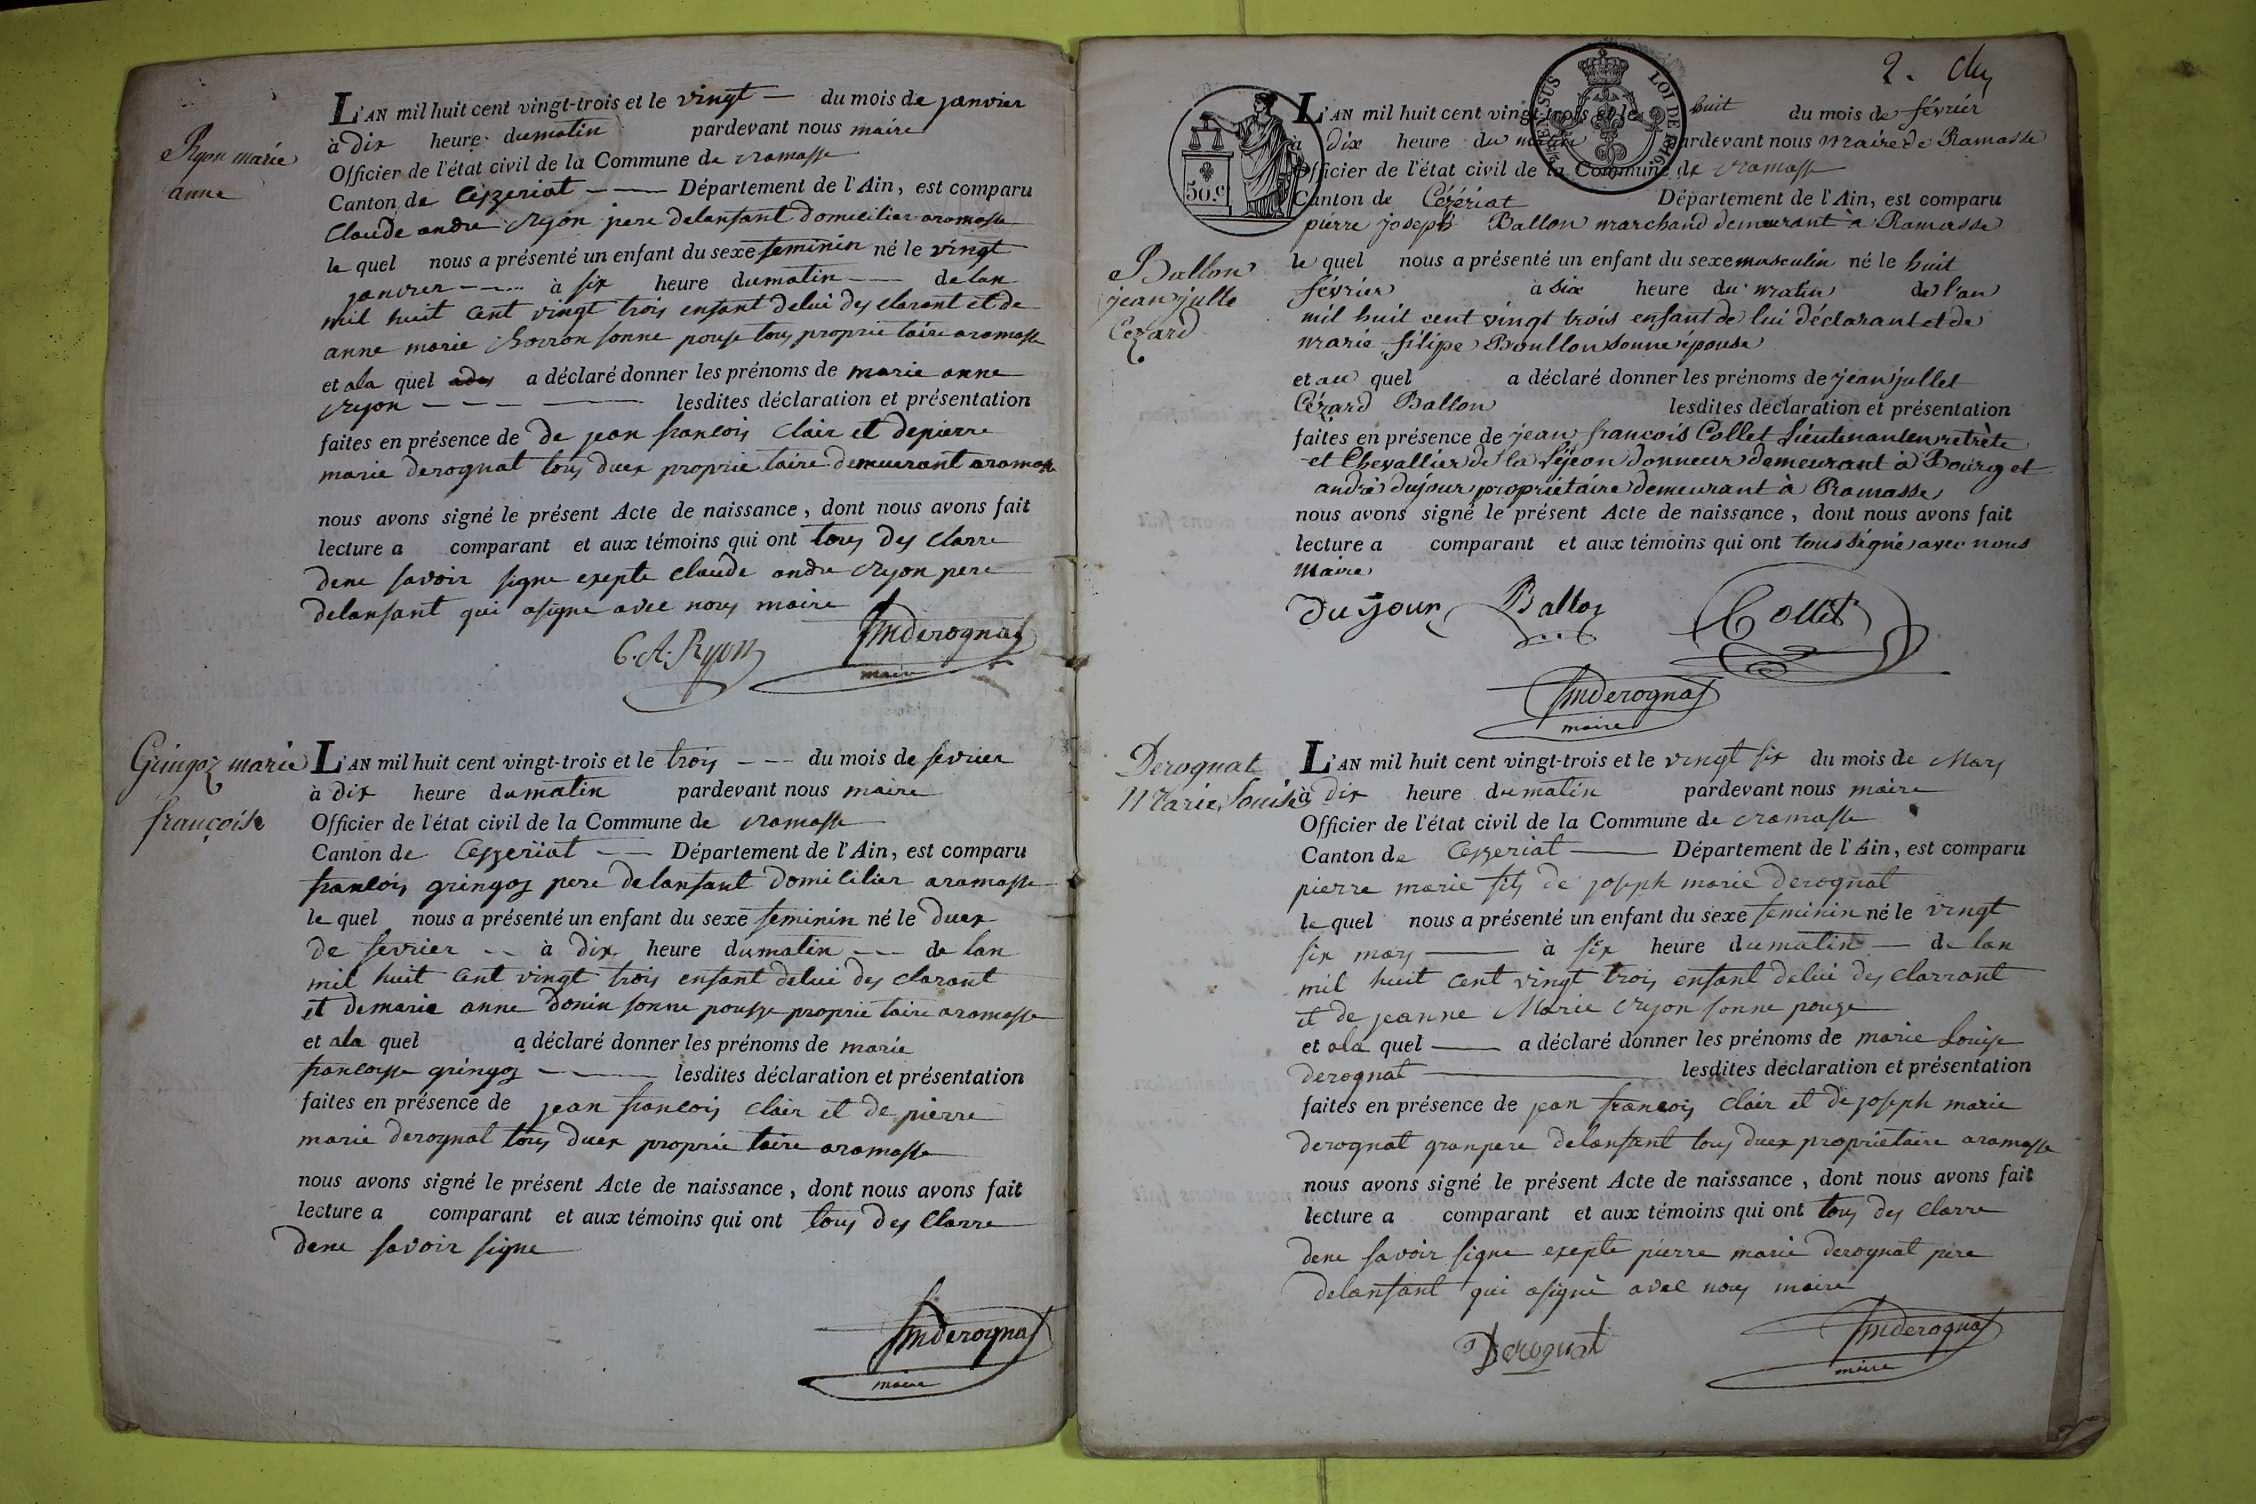 Ryon marie
anne
L'AN mil huit cent vingt-trois et le vingt — du mois de janvier
à dix heure du matin pardevant nous maire
Officier de l'état civil de la Commune de ramasse
Canton de Cezzeriat — Département de l'Ain, est comparu
Claude andre Ryon pere delanfant domicilier aramasse
le quel nous a présenté un enfant du sexe feminin né le vingt
janvier — à six heure du matin — de lan
mil huit cent vingt trois enfant delui des clarant et de
anne marie sonne pouse tous proprie taire aramasse
et ala quel a déclaré donner les prénoms de marie anne
ryon — lesdites déclaration et présentation
faites en présence de de jean francois Clair et depierre
marie derognat tous duex proprie taire demeurant aramasse
nous avons signé le présent Acte de naissance, dont nous avons fait
lecture a comparant et aux témoins qui ont tous des clarre
dene savoir signe exepte claude andre ryon pere
delanfant qui asigne avec nous maire
C. A. Ryon Jmderognat
maire
Gringoz marie
françoise
L'AN mil huit cent vingt-trois et le trois — du mois de fevrier
à dix heure du matin pardevant nous maire
Officier de l'état civil de la Commune de ramasse
Canton de Cezzeriat — Département de l'Ain, est comparu
francois gringoz pere delanfant domicilier aramasse
le quel nous a présenté un enfant du sexe feminin né le duex
de fevrier — à dix heure du matin — de lan
mil huit cent vingt trois enfant delui des clarant
et demarie anne Donin sonne pousse proprie taire aramasse
et ala quel a déclaré donner les prénoms de marie
francoisse gringoz — lesdites déclaration et présentation
faites en présence de jean francois clair et de pierre
marie derognat tous duex proprie taire aramasse
nous avons signé le présent Acte de naissance, dont nous avons fait
lecture a comparant et aux témoins qui ont tous des Clarre
dene savoir signe
Jmderognat
maire
2.
LOI DE 1816
50.c
Ballon
jean julle
Cezard
L'AN mil huit cent vingt-trois et le huit du mois de février
à dix heure du matin pardevant nous maire de Ramasse
Officier de l'état civil de la Commune de ramasse
Canton de Cézériat Département de l'Ain, est comparu
pierre joseph Ballon marchand demeurant à Ramasse
le quel nous a présenté un enfant du sexe masculin né le huit
février à six heure du matin de l'an
mil huit cent vingt trois enfant de lui déclarant et de
marie filipe Boullon sonne épouse
et au quel a déclaré donner les prénoms de jean jullet
Cézard Ballon lesdites déclaration et présentation
faites en présence de jean françois Collet Lieutenant en retrète
et Chevallier de la Léjeon donneur demeurant à Bourg et
andré dujour propriétaire demeurant à Ramasse
nous avons signé le présent Acte de naissance, dont nous avons fait
lecture a comparant et aux témoins qui ont tous signé avec nous
Maire
Dujour Ballon Collet
Jmderognat
maire
Derognat
Marie Louise
L'AN mil huit cent vingt-trois et le vingt six du mois de Mars
à dix heure du matin pardevant nous maire
Officier de l'état civil de la Commune de ramasse
Canton de Cezzeriat — Département de l'Ain, est comparu
pierre marie fils de joseph marie derognat
le quel nous a présenté un enfant du sexe feminin né le vingt
six mars — à six heure du matin — de lan
mil huit cent vingt trois enfant delui des clarrant
et de jeanne Marie ryon sonne pouze
et ala quel — a déclaré donner les prénoms de marie Louise
derognat — lesdites déclaration et présentation
faites en présence de jean françois Clair et de joseph marie
derognat granpere delanfant tous duex propriétaire aramasse
nous avons signé le présent Acte de naissance, dont nous avons fait
lecture a comparant et aux témoins qui ont tous des clarre
dene savoir signe exepte pierre marie derognat pere
delanfant qui asigné avec nous maire
Derognat Jmderognat
maire